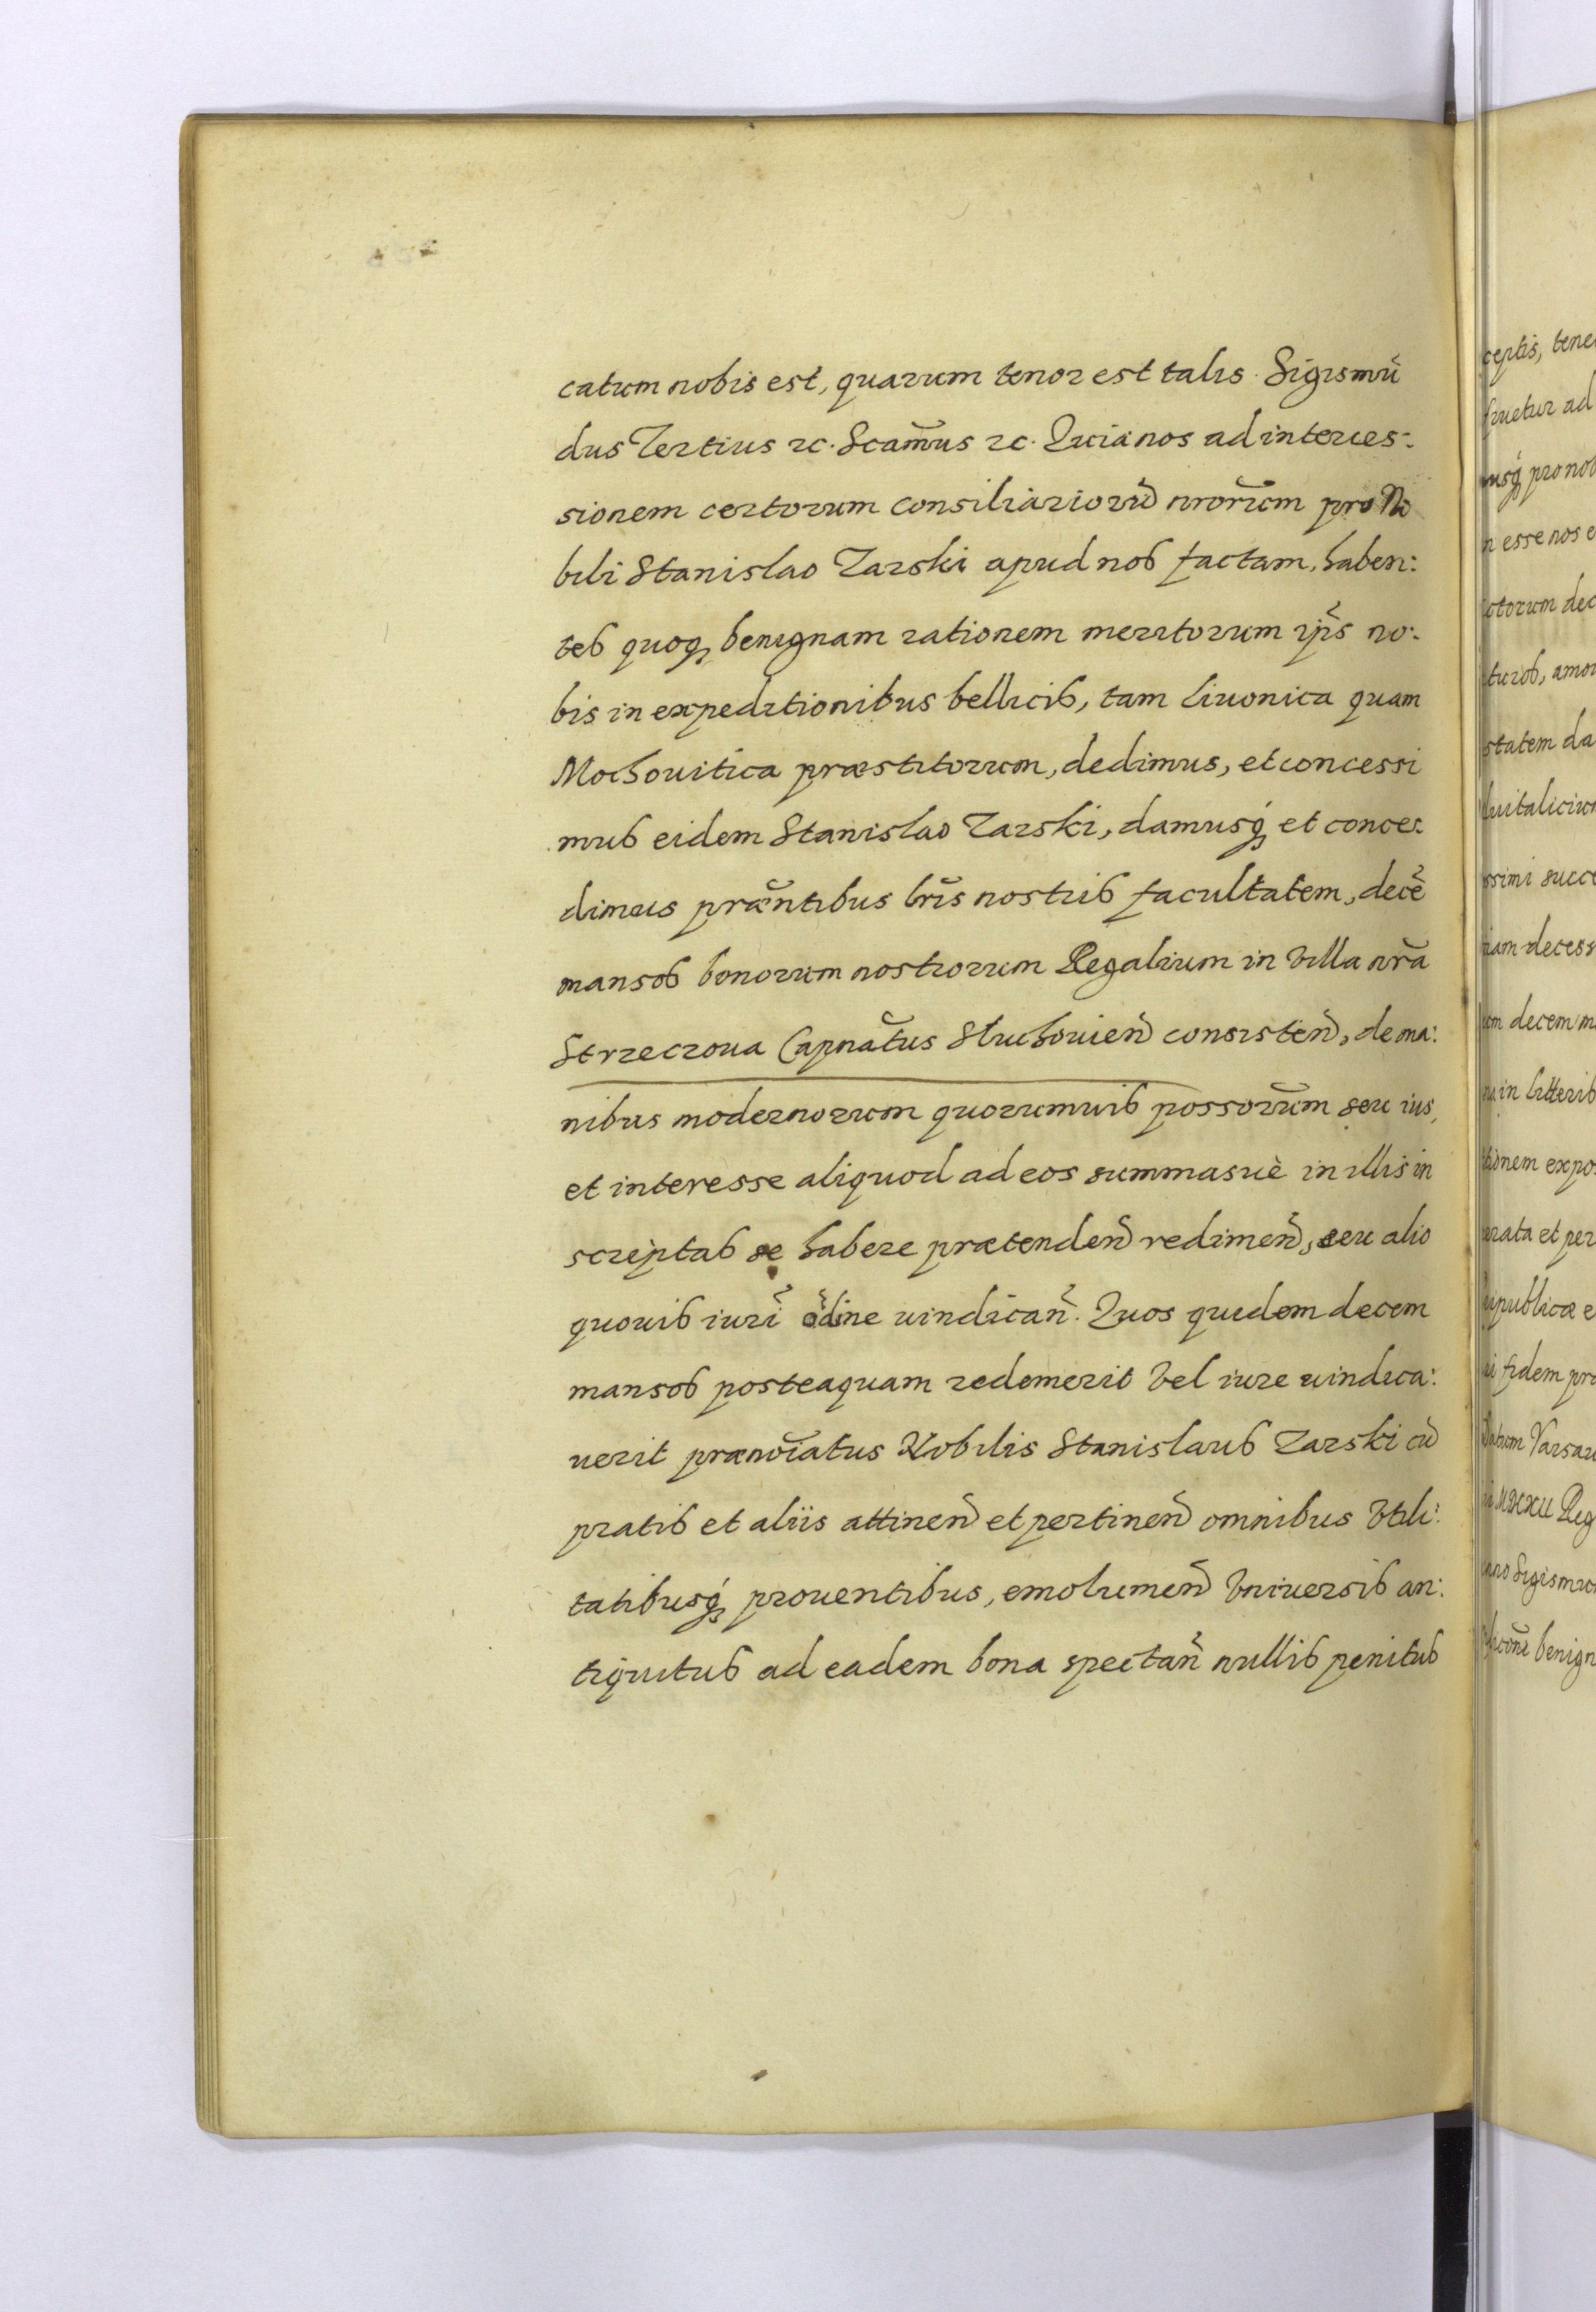 catum nobis est, quarum tenor est talis. Sigismũ
dus Tertius ec. Scam̃us ec. Quia nos ad interces:
sionem certorum consiliariorũ nrõrum pro No
bili Stanislao Zarski apud nos factam, haben:
tes quoq, benignam rationem meritorum ip̃s no:
bis in expeditionibus bellicis, tam Livonica quam
Moschouitica præstitorum, dedimus, et concessi
mus eidem Stanislao Zarski, damusq́ et conce:
dimus præñtibus lr̃is nostris facultatem, decẽ
mansos bonorum nostrorum Regalium in Villa nr̃a
Strzeczoua Capnãtus Sluchouien̄ consisten̄, de ma:
nibus modernorum quorumuis possor̃um seu ius,
et interesse aliquod ad eos summasuè in illis in
scriptas se habere prætenden̄ redimen̄, seu alio
quouis iuri õdine uindican̄. Quos quidem decem
mansos posteaquam redemerit Vel iure uindica:
uerit prænoĩatus Nobilis Stanislaus Zarski cũ
pratis et aliis attinen̄ et pertinen̄ omnibus Vtili:
tatibusq́, prouentibus, emolumen̄ Vniuersis an:
tiquitus ad eadem bona spectan̄ nullis penitus
ceptis, tene
fruetur ad
usq́ pro nob
esse nos e
ctorum dec
turos, amo
statem da
uitalicium
ssimi succe
iam decess
um decem m
in litteris
tionem expo
erata et per
eipublicæ e
i fidem pro
Datum Varsau
MDXXII Reg
Sigismun
benign